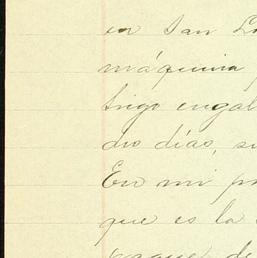 en San
máquina
trigo engal
dio días, su
En mi pr
que es la